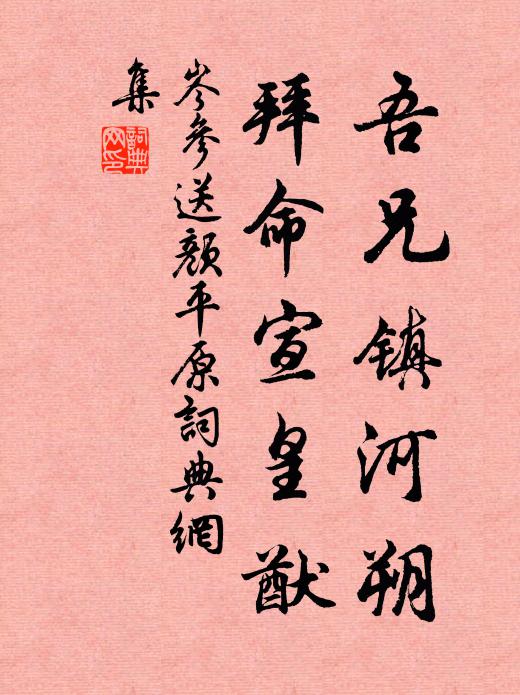 吾兄镇河朔
拜命宣皇猷
岑参送颜平原詞典網
集
詞典
网印